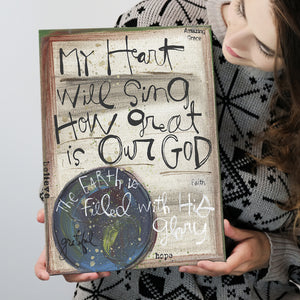 Amazing
Grace
My Heart
will Sing
How great
is OUR GOD
believe
Faith
The EARTH is
Filled with His
glory
grateful
hope